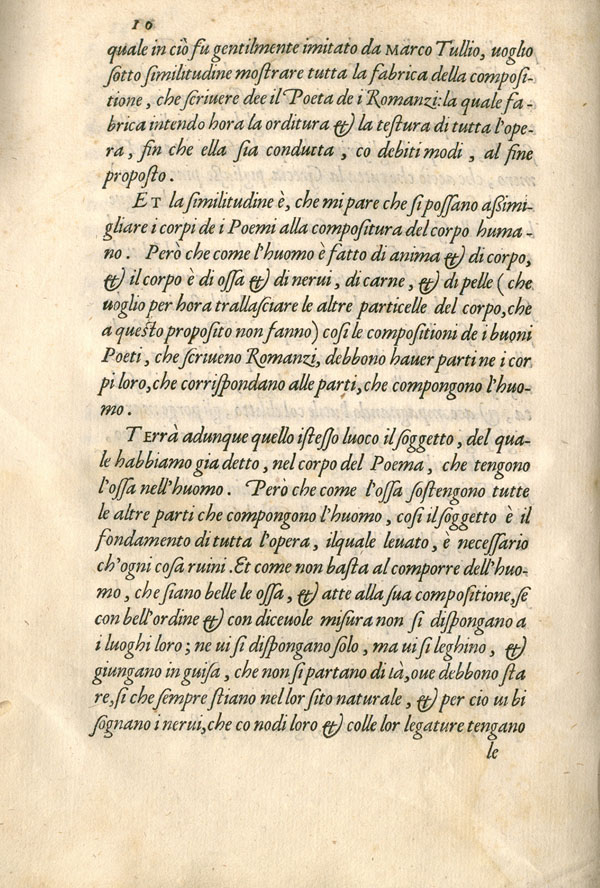 10
quale in ciò fu gentilmente imitato da MARCO Tullio, uoglio
sotto similitudine mostrare tutta la fabrica della composi-
tione, che scriuere dee il Poeta de i Romanzi: la quale fa-
brica intendo hora la orditura & la testura di tutta l'ope-
ra, fin che ella sia condutta, co debiti modi, al fine
proposto.
ET la similitudine è, che mi pare che si possano assimi-
gliare i corpi de i Poemi alla compositura del corpo huma-
no. Però che come l'huomo è fatto di anima & di corpo,
& il corpo è di ossa & di nerui, di carne, & di pelle (che
uoglio per hora trallasciare le altre particelle del corpo, che
a questo proposito non fanno) cosi le compositioni de i buoni
Poeti, che scriueno Romanzi, debbono hauer parti ne i cor
pi loro, che corrispondano alle parti, che compongono l'huo-
mo.
TERRÀ adunque quello istesso luoco il soggetto, del qua-
le habbiamo gia detto, nel corpo del Poema, che tengono
l'ossa nell'huomo. Però che come l'ossa sostengono tutte
le altre parti che compongono l'huomo, cosi il soggetto è il
fondamento di tutta l'opera, ilquale leuato, è necessario
ch'ogni cosa ruini. Et come non basta al comporre dell'huo-
mo, che siano belle le ossa, & atte alla sua compositione, se
con bell'ordine & con diceuole misura non si dispongano a
i luoghi loro; ne ui si dispongano solo, ma ui si leghino, &
giungano in guisa, che non si partano di là, oue debbono sta
re, si che sempre stiano nel lor sito naturale, & per cio ui bi
sognano i nerui, che co nodi loro & colle lor legature tengano
le